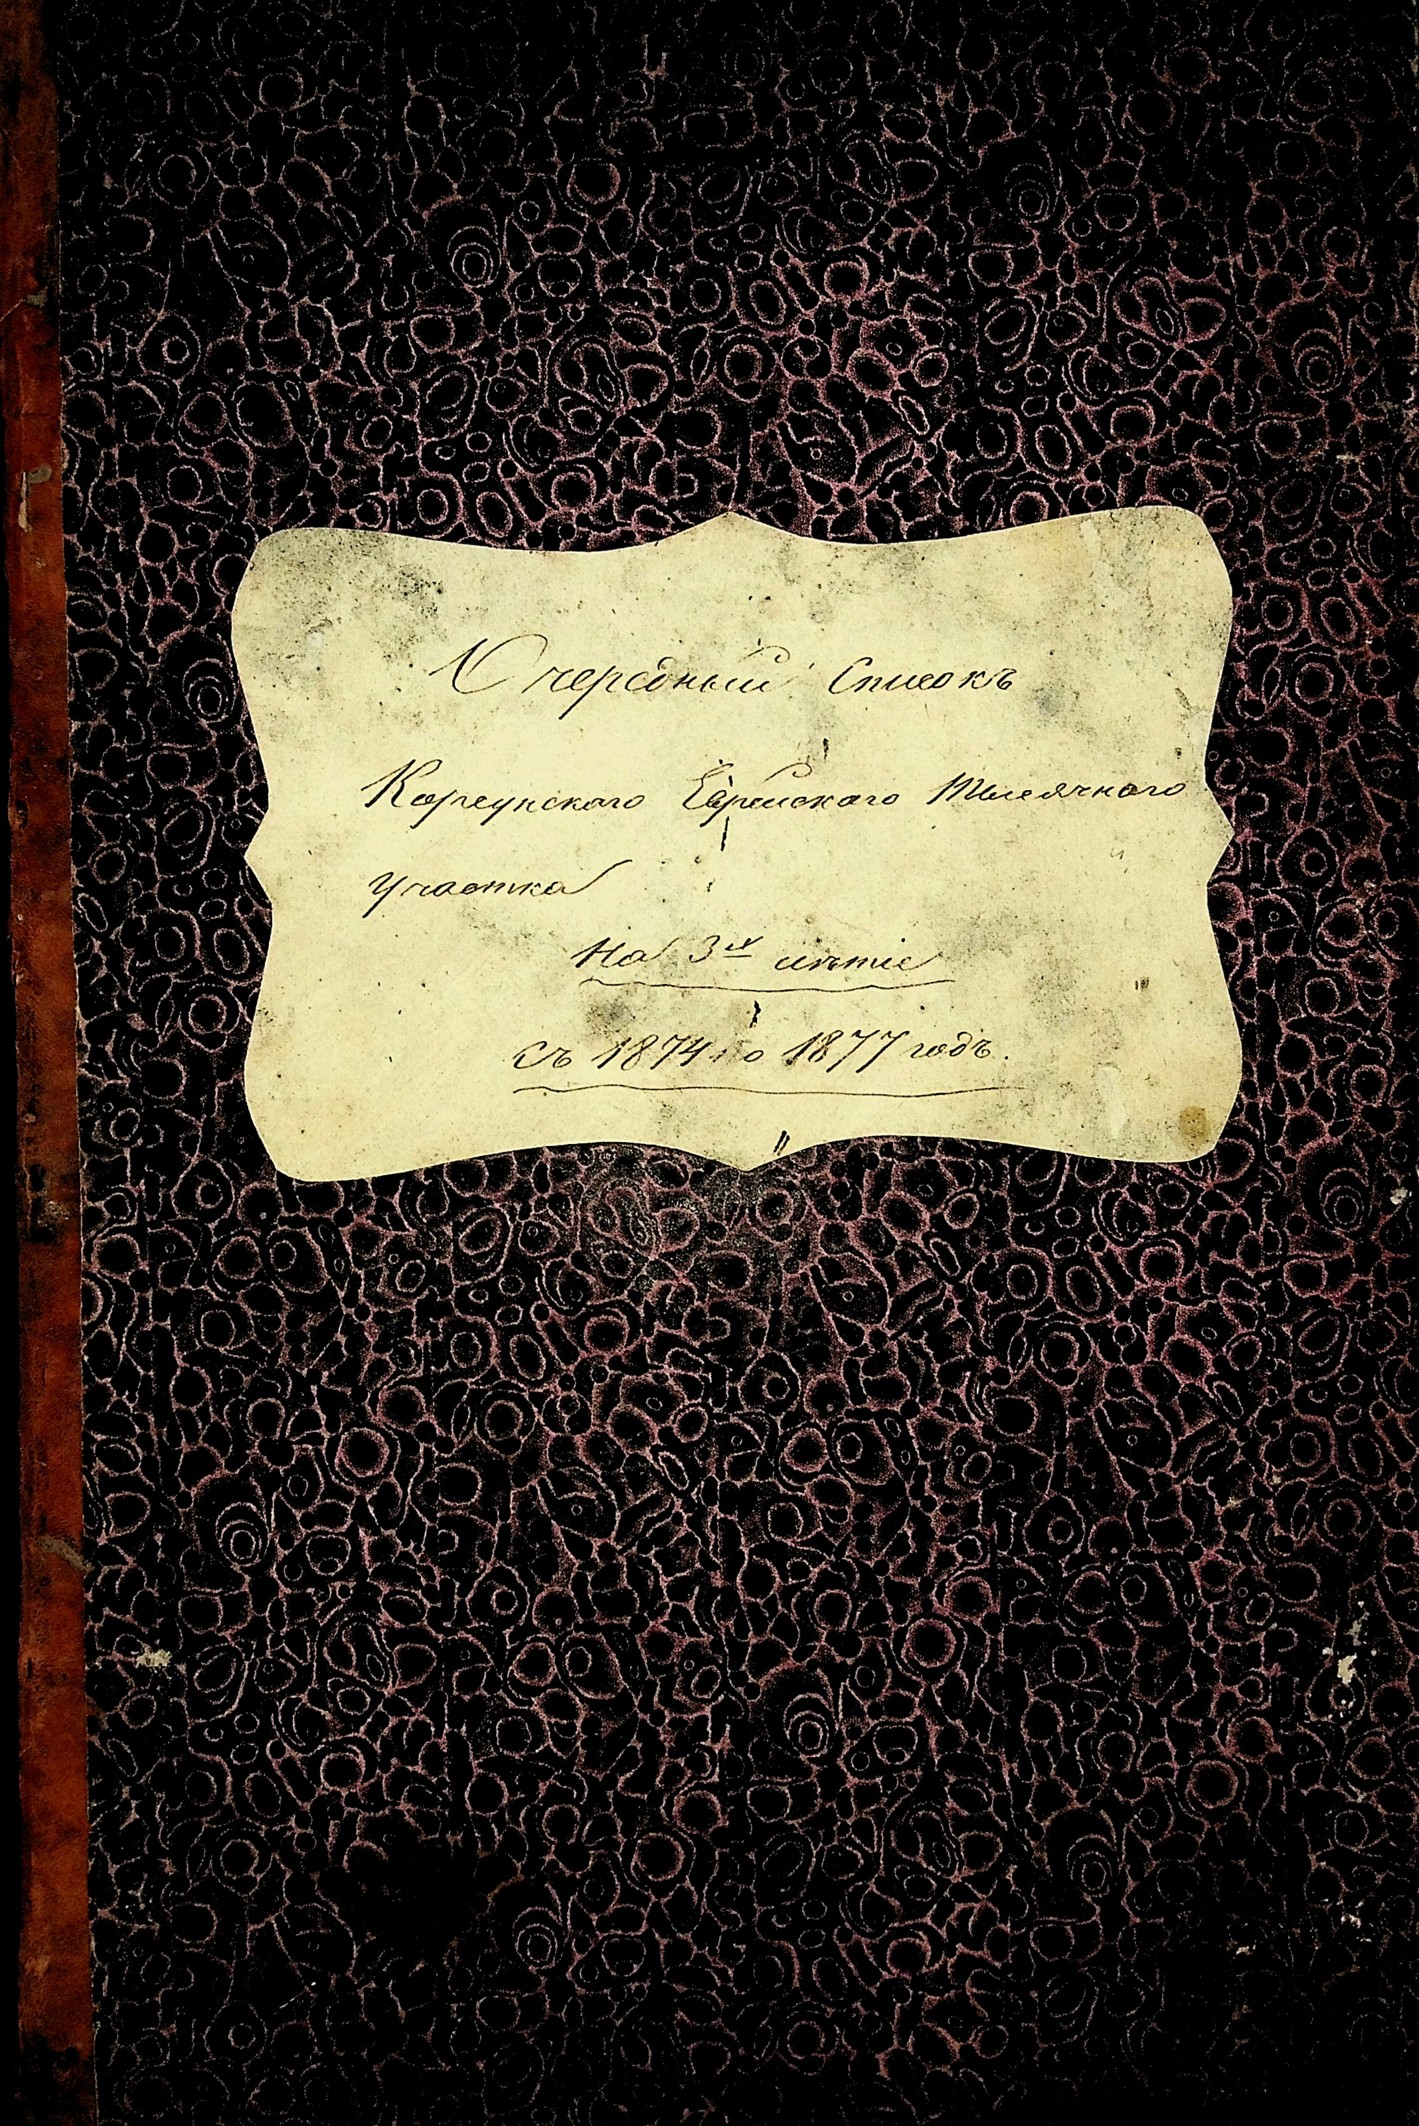 Очередный Списокъ
Корсунскаго Еврейскаго
Участка
На 3х лѣтіе
съ 1874 по 1877 годъ.